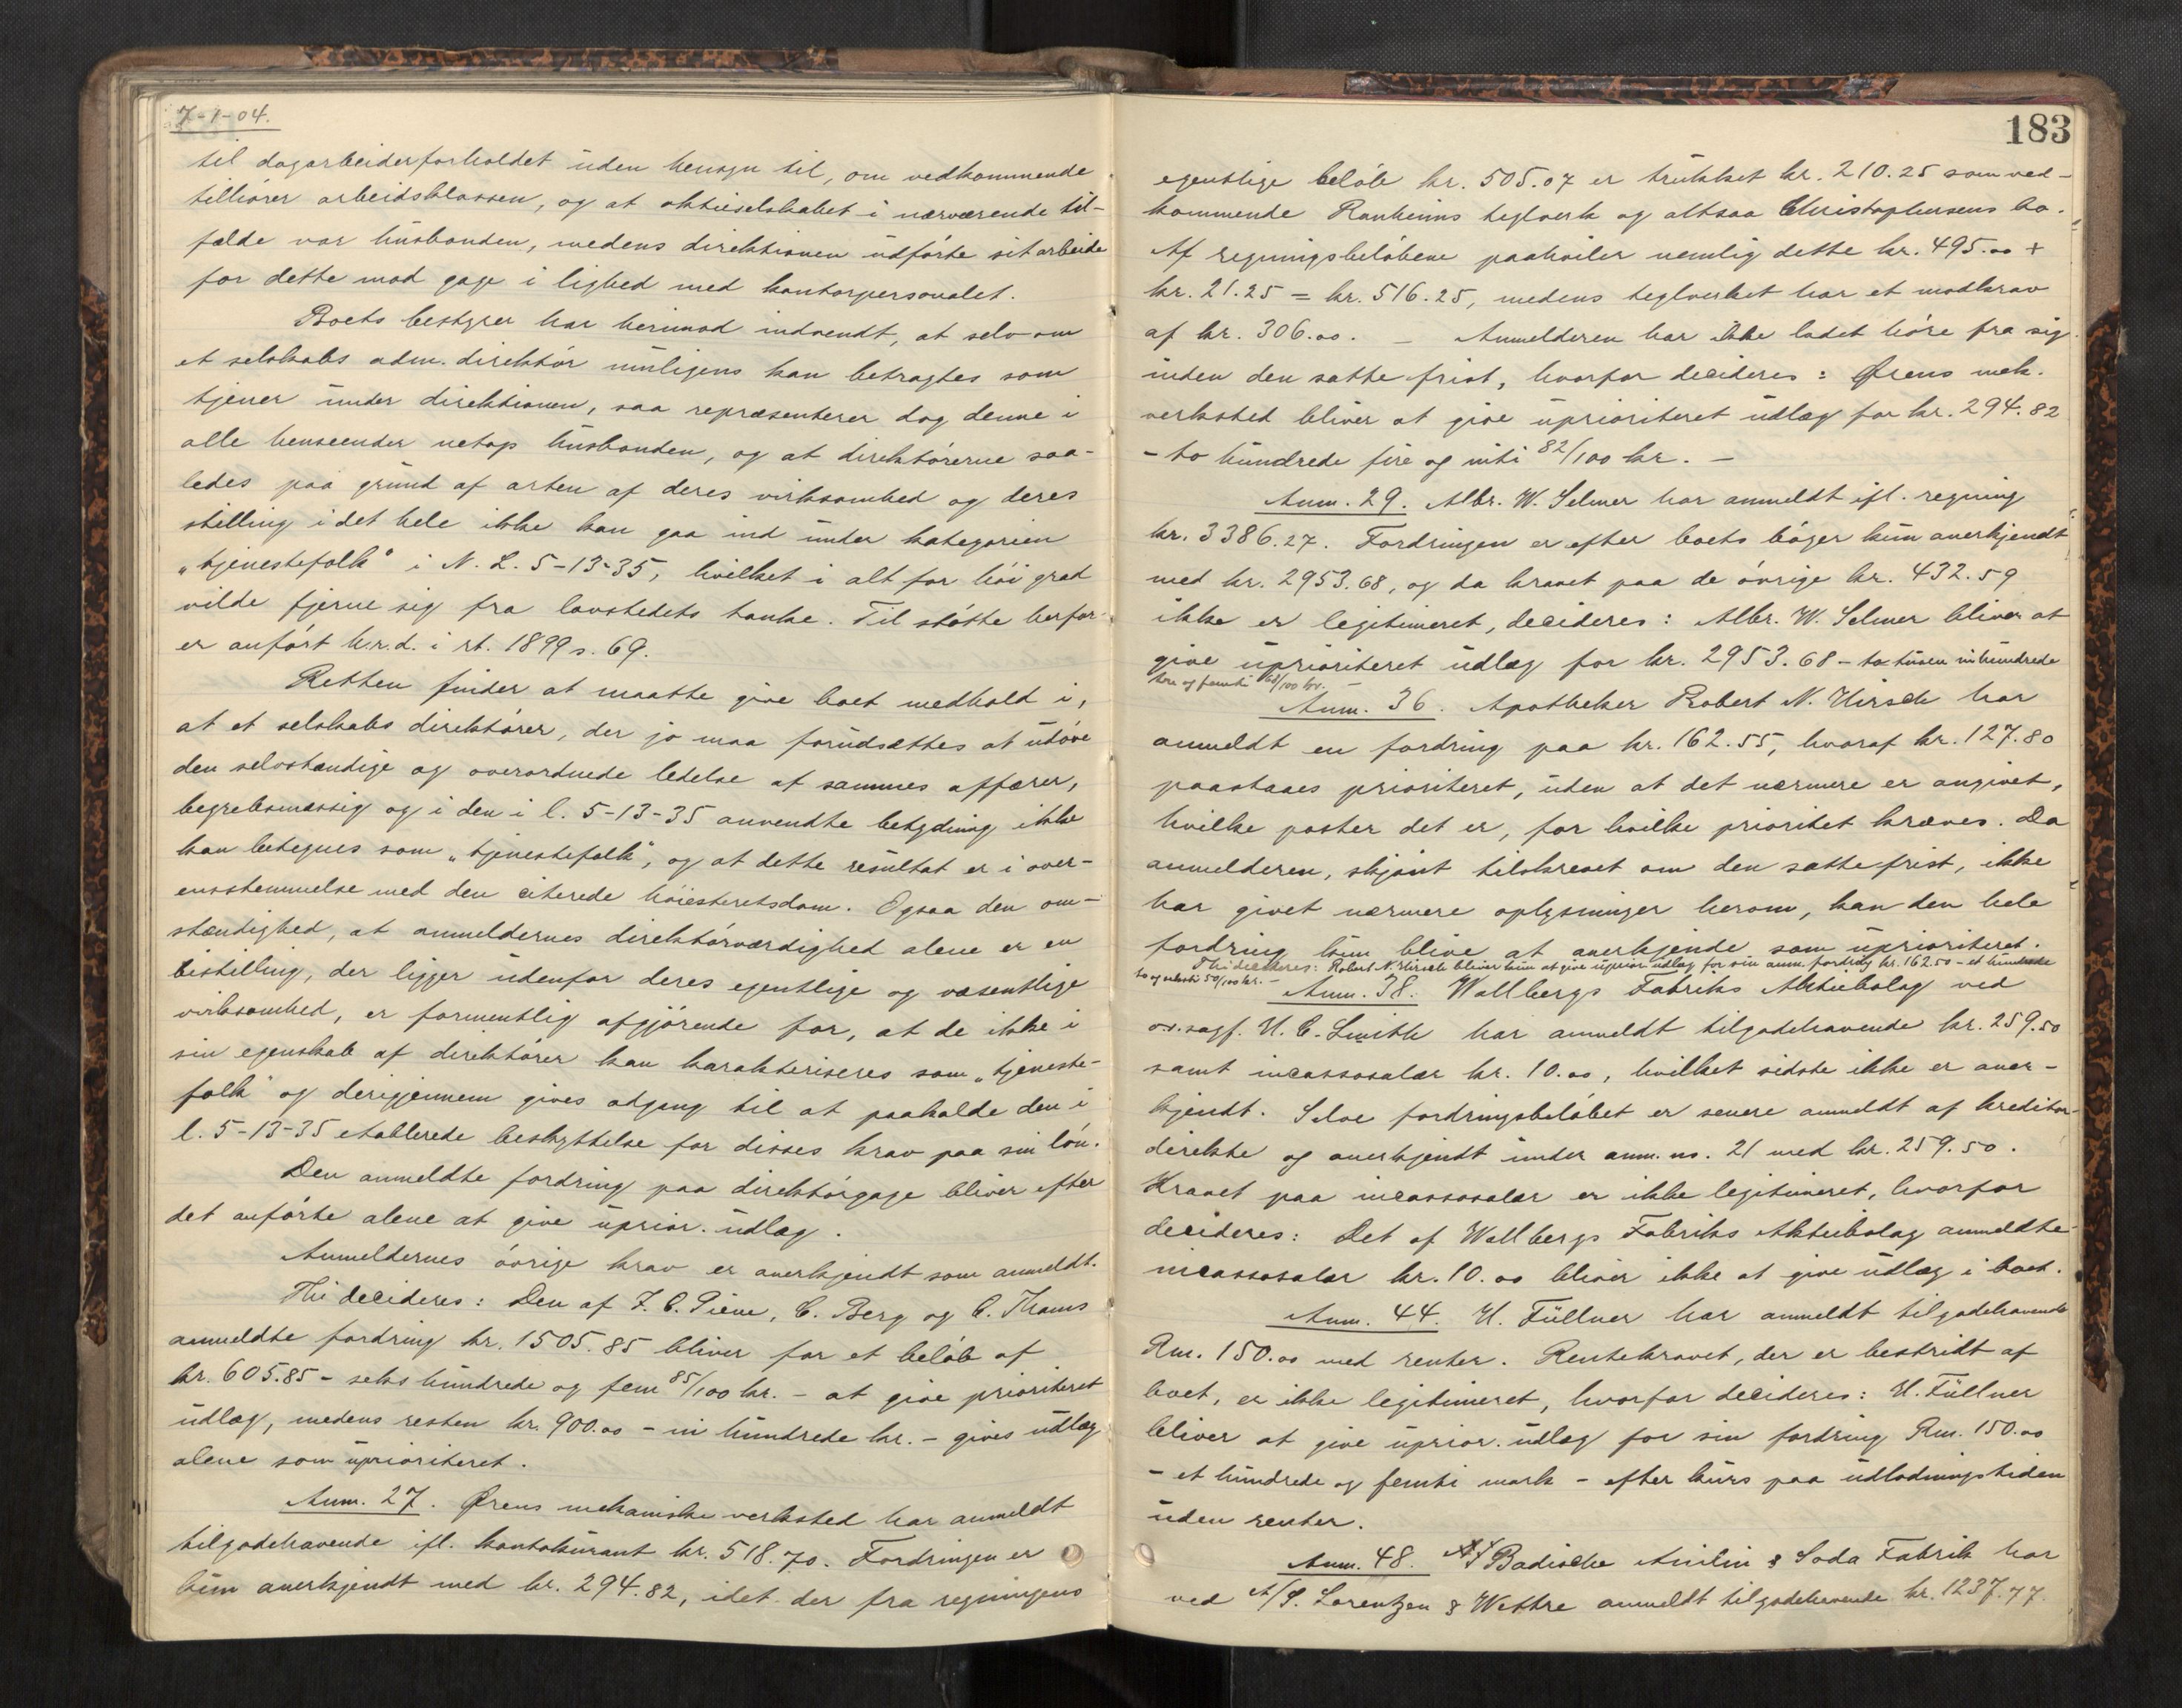 7-1-04.
til dagarbeiderforholdet uden hensyn til, om vedkommende
tilhører arbeidsklassen, og at aktieselskabet i nærværende til-
fælde var husbonden, medens direktionen udførte sit arbeide
for dette mod gage i lighed med kontorpersonalet.
Boets bestyrer har herimod indvendt, at selv om
et selskabs adm. direktør muligens kan betragtes som
tjener under direktionen, saa repræsenterer dog denne i
alle henseender netop husbonden, og at direktørerne saa-
ledes paa grund af arten af deres virksomhed og deres
stilling i det hele ikke kan gaa ind under kategorien
"tjenestefolk" i N. L. 5-13-35, hvilket i alt for høi grad
vilde fjerne sig fra lovstedets tanke. Til støtte herfor
er anført h.r.d. i rt. 1899 s. 69.
Retten finder at maatte give boet medhold i,
at et selskabs direktører, der jo maa forudsættes at udøve
den selvstændige og overordnede ledelse af sammes affærer,
begrebsmæssig og i den i l. 5-13-35 anvendte betydning ikke
kan betegnes som "tjenestefolk", og at dette resultat er i over-
ensstemmelse med den citerede høiesteretsdom. Ogsaa den om-
stændighed, at anmeldernes direktørværdighed alene er en
bistilling, der ligger udenfor deres egentlige og væsentlige
virksomhed, er formentlig afgjørende for, at de ikke i
sin egenskab af direktører kan karakteriseres som "tjeneste-
folk" og derigjennem gives adgang til at paakalde den i
l. 5-13-35 etablerede beskyttelse for disses krav paa sin løn.
Den anmeldte fordring paa direktørgage bliver efter
det anførte alene at give uprior. udlæg.
Anmeldernes øvrige krav er anerkjendt som anmeldt.
Thi decideres: Den af F. C. Piene, C. Berg og C. Thams
anmeldte fordring kr. 1505.85 bliver for et beløb af
kr. 605.85 - seks hundrede og fem 85/100 kr. - at give prioriteret
udlæg, medens resten kr. 900.00 - ni hundrede kr. - gives udlæg
alene som uprioriteret.
Anm. 27. Ørens mekaniske verksted har anmeldt
tilgodehavende ifl. kontokurant kr. 518.70. Fordringen er
kun anerkjendt med kr. 294.82, idet der fra regningens
183
egentlige beløb kr. 505.07 er trukket kr. 210.25 som ved-
kommende Ranheims teglverk og altsaa Christophersens bo.
Af regningsbeløbene paahviler nemlig dette kr. 495.00 +
kr. 21.25 = kr. 516.25, medens teglverket har et modkrav
af kr. 306.00. - Anmelderen har ikke ladet høre fra sig
inden den satte frist, hvorfor decideres: Ørens mek.
verksted bliver at give uprioriteret udlæg for kr. 294.82
- to hundrede fire og niti 82/100 kr. -
Anm. 29. Albr. W. Selmer har anmeldt ifl. regning
kr. 3386.27. Fordringen er efter boets bøger kun anerkjendt
med kr. 2953.68, og da kravet paa de øvrige kr. 432.59
ikke er legitimeret, decideres: Albr. W. Selmer bliver at
give uprioriteret udlæg for kr. 2953.68 - to tusen nihundrede
tre og femti 68/100 kr. -
Anm. 36. Apotheker Robert N. Hirsch har
anmeldt en fordring paa kr. 162.55, hvoraf kr. 127.80
paastaaes prioriteret, uden at det nærmere er angivet,
hvilke poster det er, for hvilke prioritet kræves. Da
anmelderen, skjønt tilskrevet om den satte frist, ikke
har givet nærmere oplysninger herom, kan den hele
fordring kun blive at anerkjende som uprioriteret.
Thi decideres: Robert N. Hirsch bliver kun at give uprior. udlæg for sin anm. fordring kr. 162.50 - et hundrede
to og seksti 50/100 kr. -
Anm. 38. Wallbergs Fabriks Aktiebolag ved
o.r.sagf. H. C. Smith har anmeldt tilgodehavende kr. 259.50
samt incassosalær kr. 10.00, hvilket sidste ikke er aner-
kjendt. Selve fordringsbeløbet er senere anmeldt af kreditor
direkte og anerkjendt under anm. no. 21 med kr. 259.50.
Kravet paa incassosalær er ikke legitimeret, hvorfor
decideres: Det af Wallbergs Fabriks Aktiebolag anmeldte
incassosalær kr. 10.00 bliver ikke at give udlæg i boet.
Anm. 44. H. Füllner har anmeldt tilgodehavende
Rm. 150.00 med renter. Rentekravet, der er bestridt af
boet, er ikke legitimeret, hvorfor decideres: H. Füllner
bliver at give uprior. udlæg for sin fordring Rm. 150.00
- et hundrede og femti mark - efter kurs paa udlodningstiden
uden renter.
Anm. 48. A/S Badische Anilin & Soda Fabrik har
ved A/S. Lorentzen & Wettre anmeldt tilgodehavende kr. 1237.77